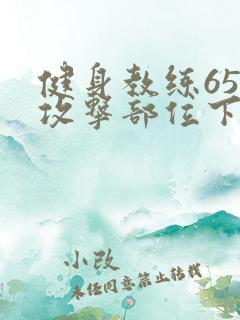 健身教练65
攻撃部位下
小改
未经同意禁止转载